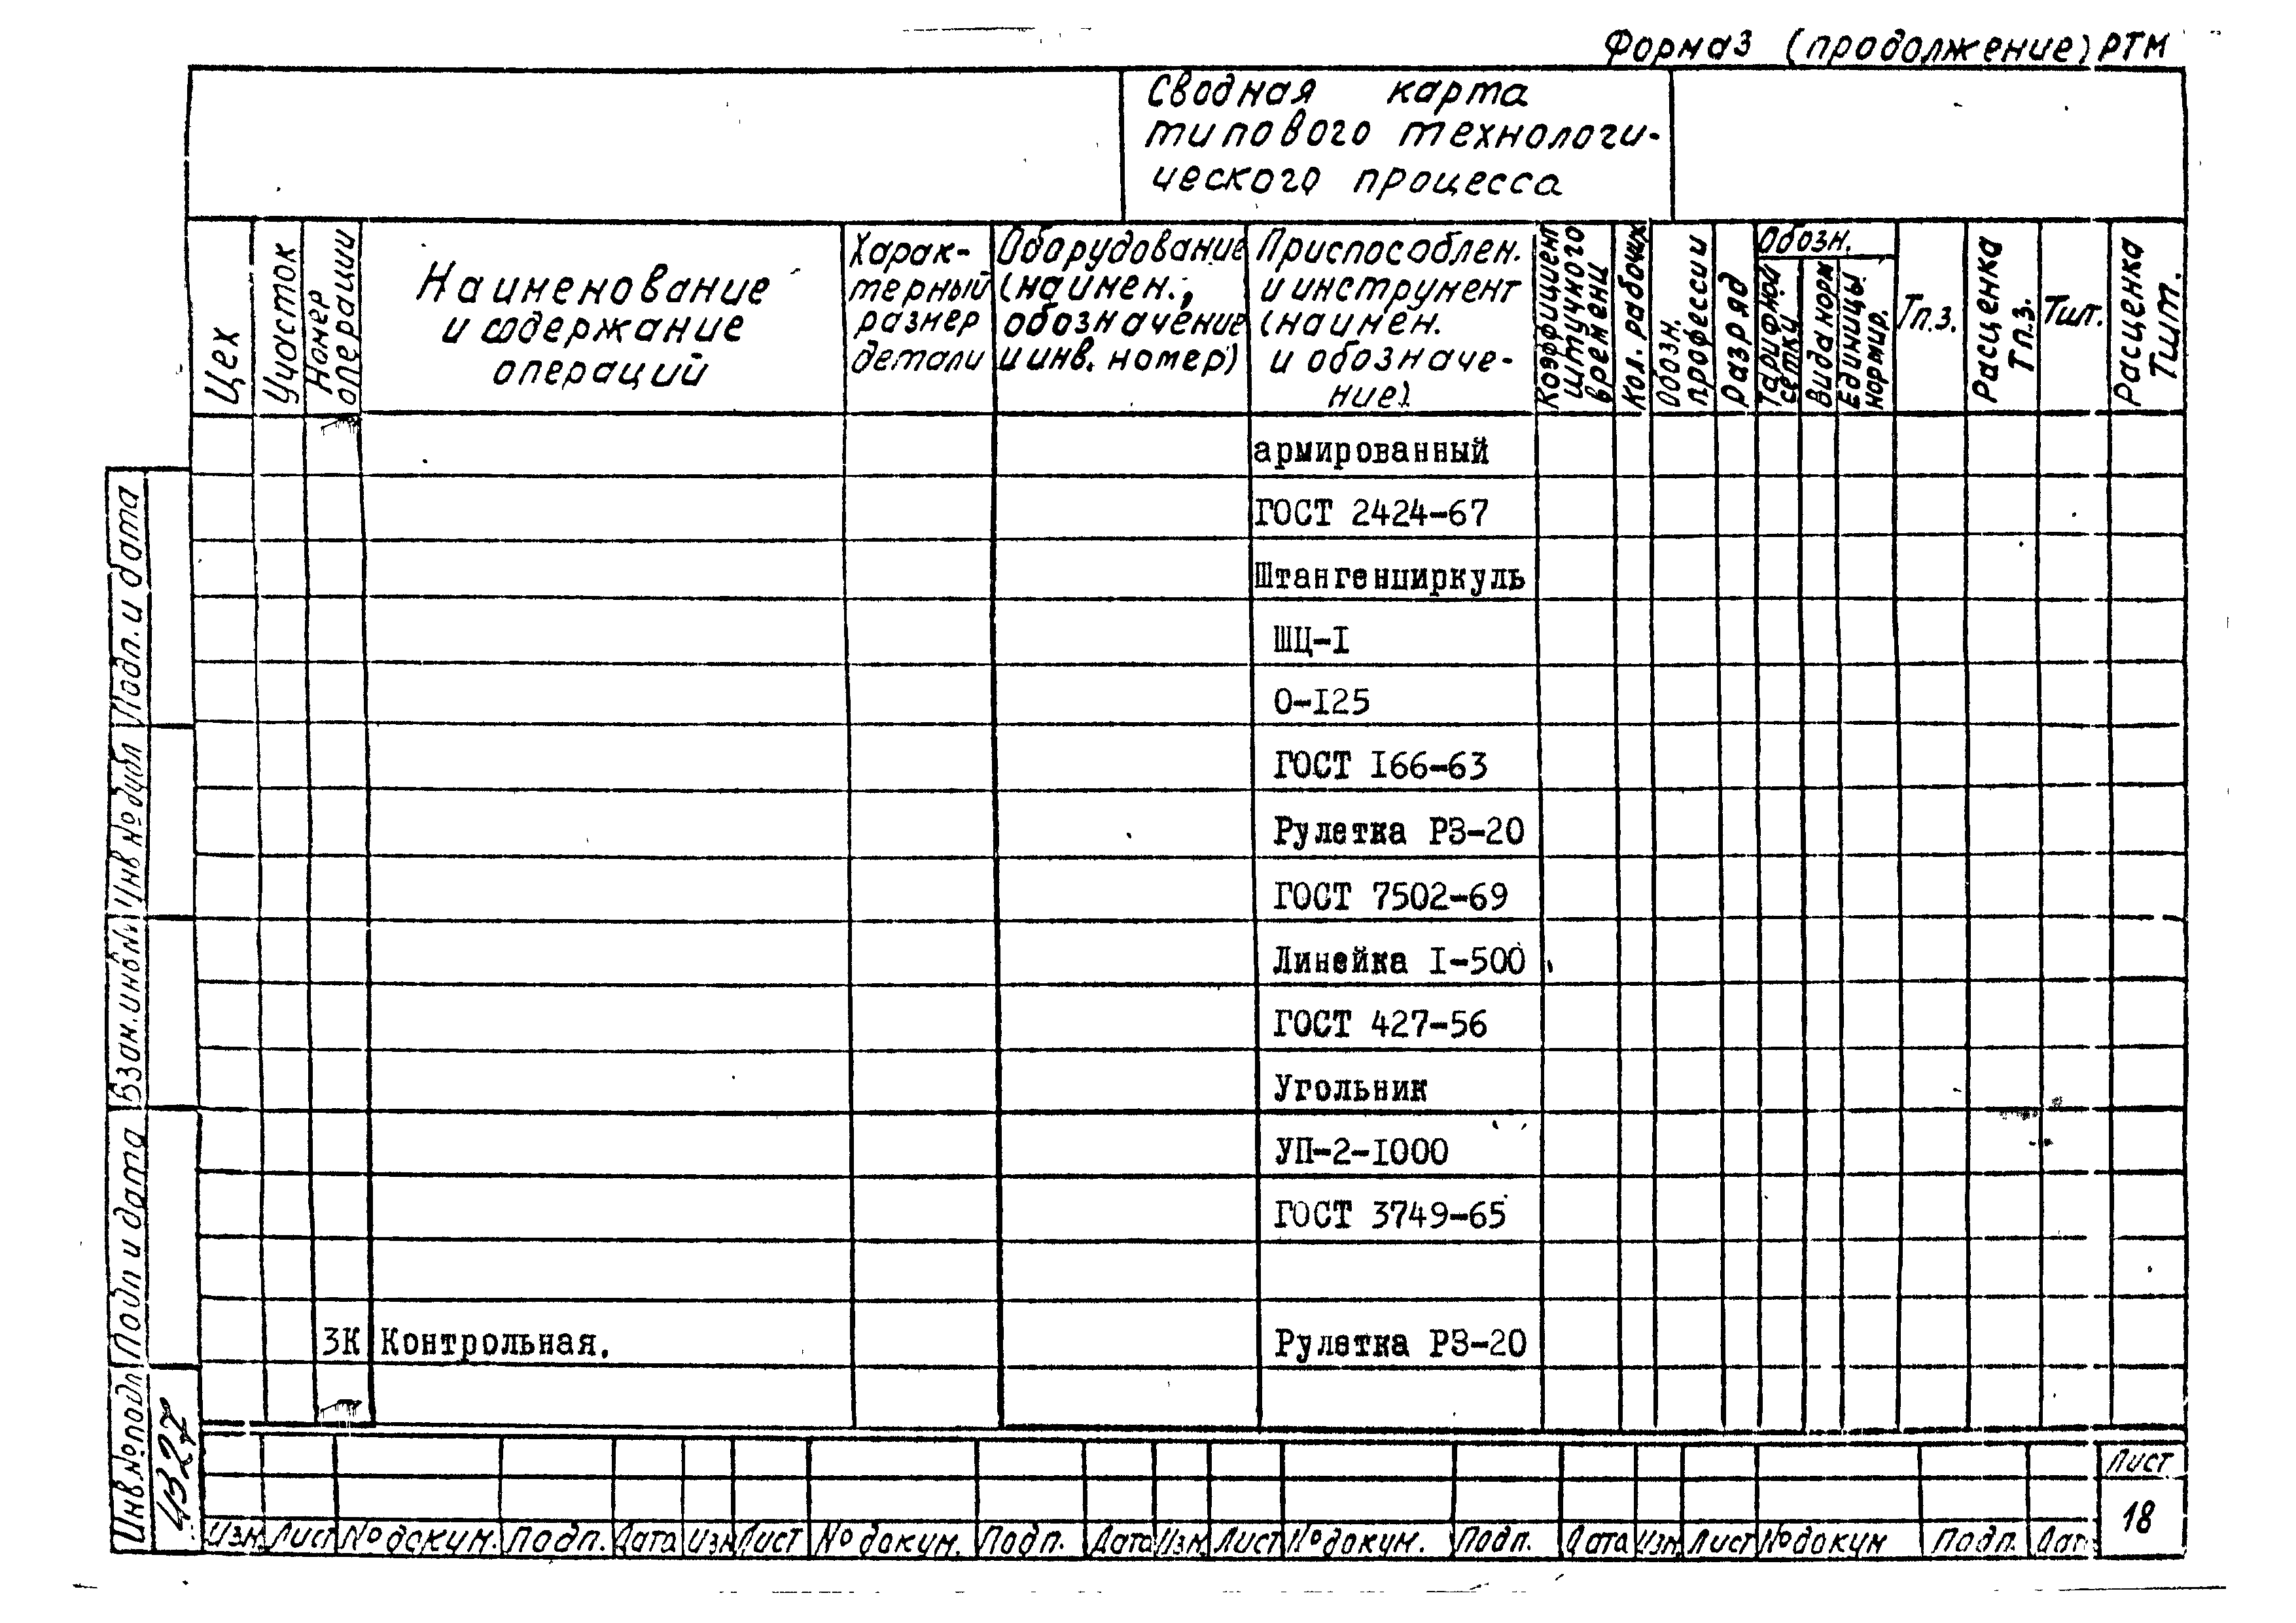 Форма3 (продолжение) РТМ
Сводная карта
типового технологи-
ческого процесса
Цех
Участок
Номер
операции
Наименование
и содержание
операций
Харак-
терный
размер
детали
Оборудование
(наимен.,
обозначение
и инв. номер)
Приспособлен.
и инструмент
(наимен.
и обозначе-
ние)
Коэффициент
штучного
времени
Кол. рабочих
Обозн.
профессии
Разряд
Обозн.
Тарифной
сетки
Вида норм
Единицы
нормир.
Тп.з.
Расценка
Тп.з.
Тшт.
Расценка
Тшт.
армированный
ГОСТ 2424-67
Штангенциркуль
ШЦ-I
0-I25
ГОСТ I66-63
Рулетка РЗ-20
ГОСТ 7502-69
Линейка I-500
ГОСТ 427-56
Угольник
УП-2-I000
ГОСТ 3749-65
3К Контрольная. Рулетка РЗ-20
Подп. и дата
Инв № дубл
Взам. инв №
Подп и дата
Инв. № подл
4327
Изм. Лист № докум. подп. Дата Изм Лист № докум. Подп. Дата Изм. Лист № докум. Подп. Дата Изм. Лист № докум Подп. Дата
Лист
18